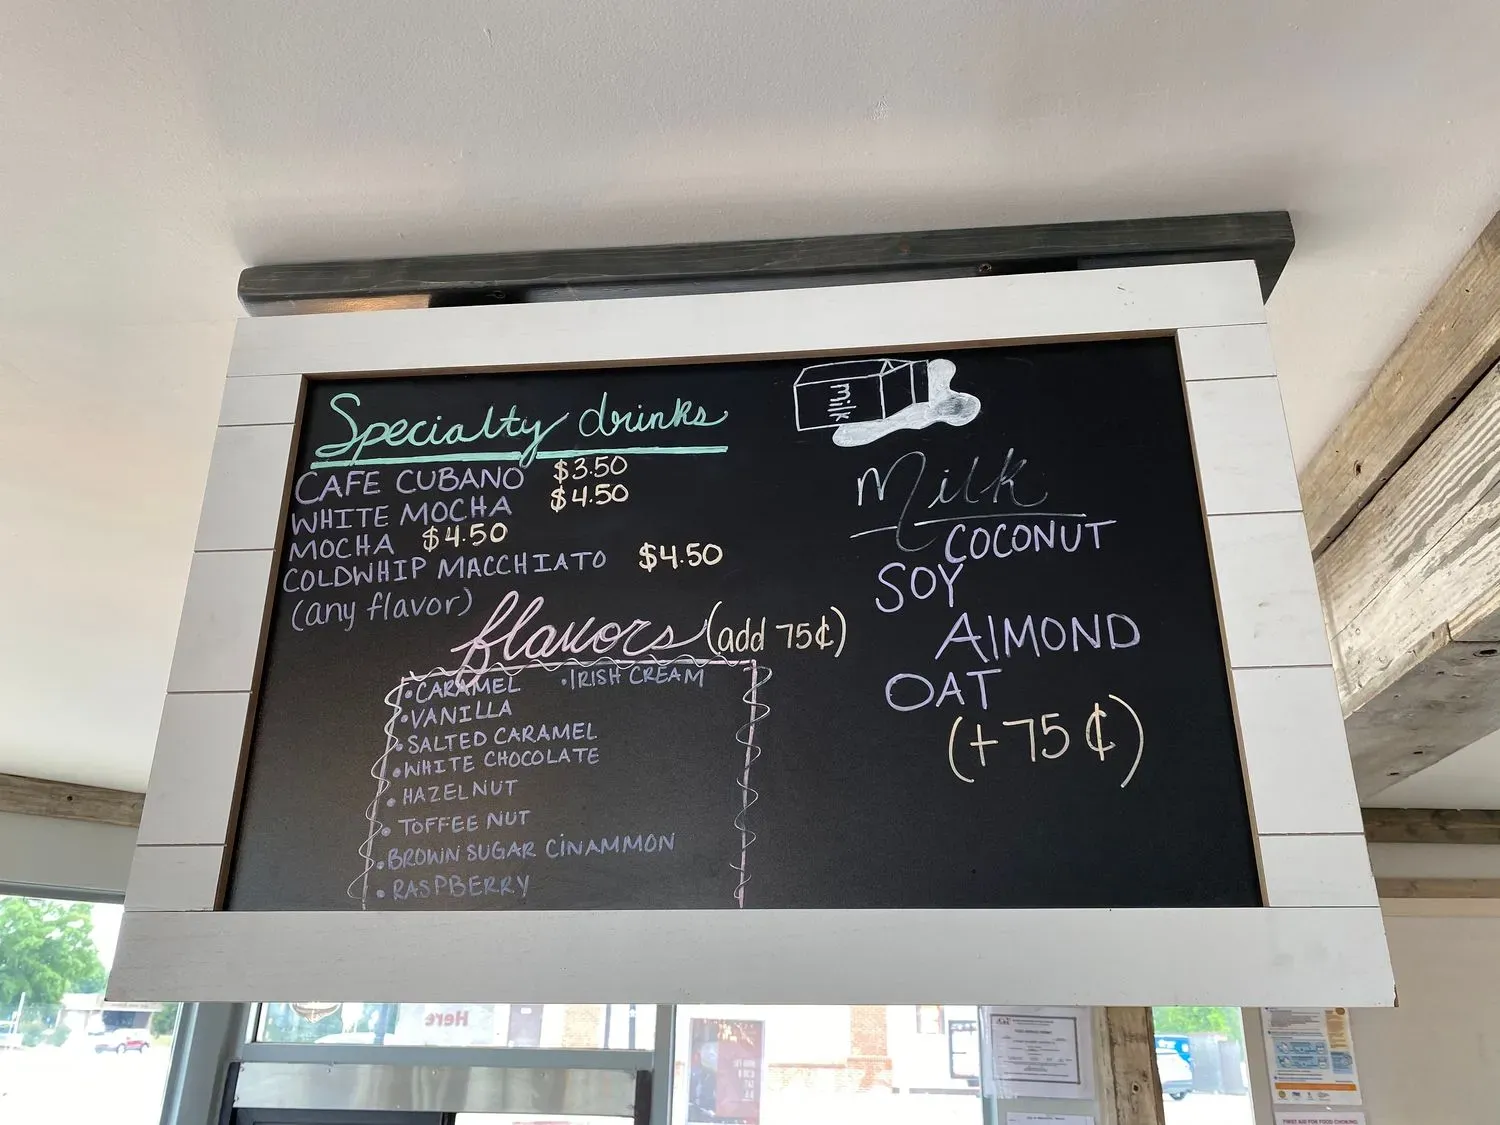 Specialty drinks
CAFE CUBANO $3.50
WHITE MOCHA $4.50
MOCHA $4.50
COLDWHIP MACCHIATO $4.50
(any flavor)
flavors (add 75¢)
•CARAMEL •IRISH CREAM
•VANILLA
•SALTED CARAMEL
•WHITE CHOCOLATE
•HAZELNUT
•TOFFEE NUT
•BROWN SUGAR CINAMMON
•RASPBERRY
milk
Milk
COCONUT
SOY
AlMOND
OAT
(+75¢)
Here
FIRST AID FOR CHOKING